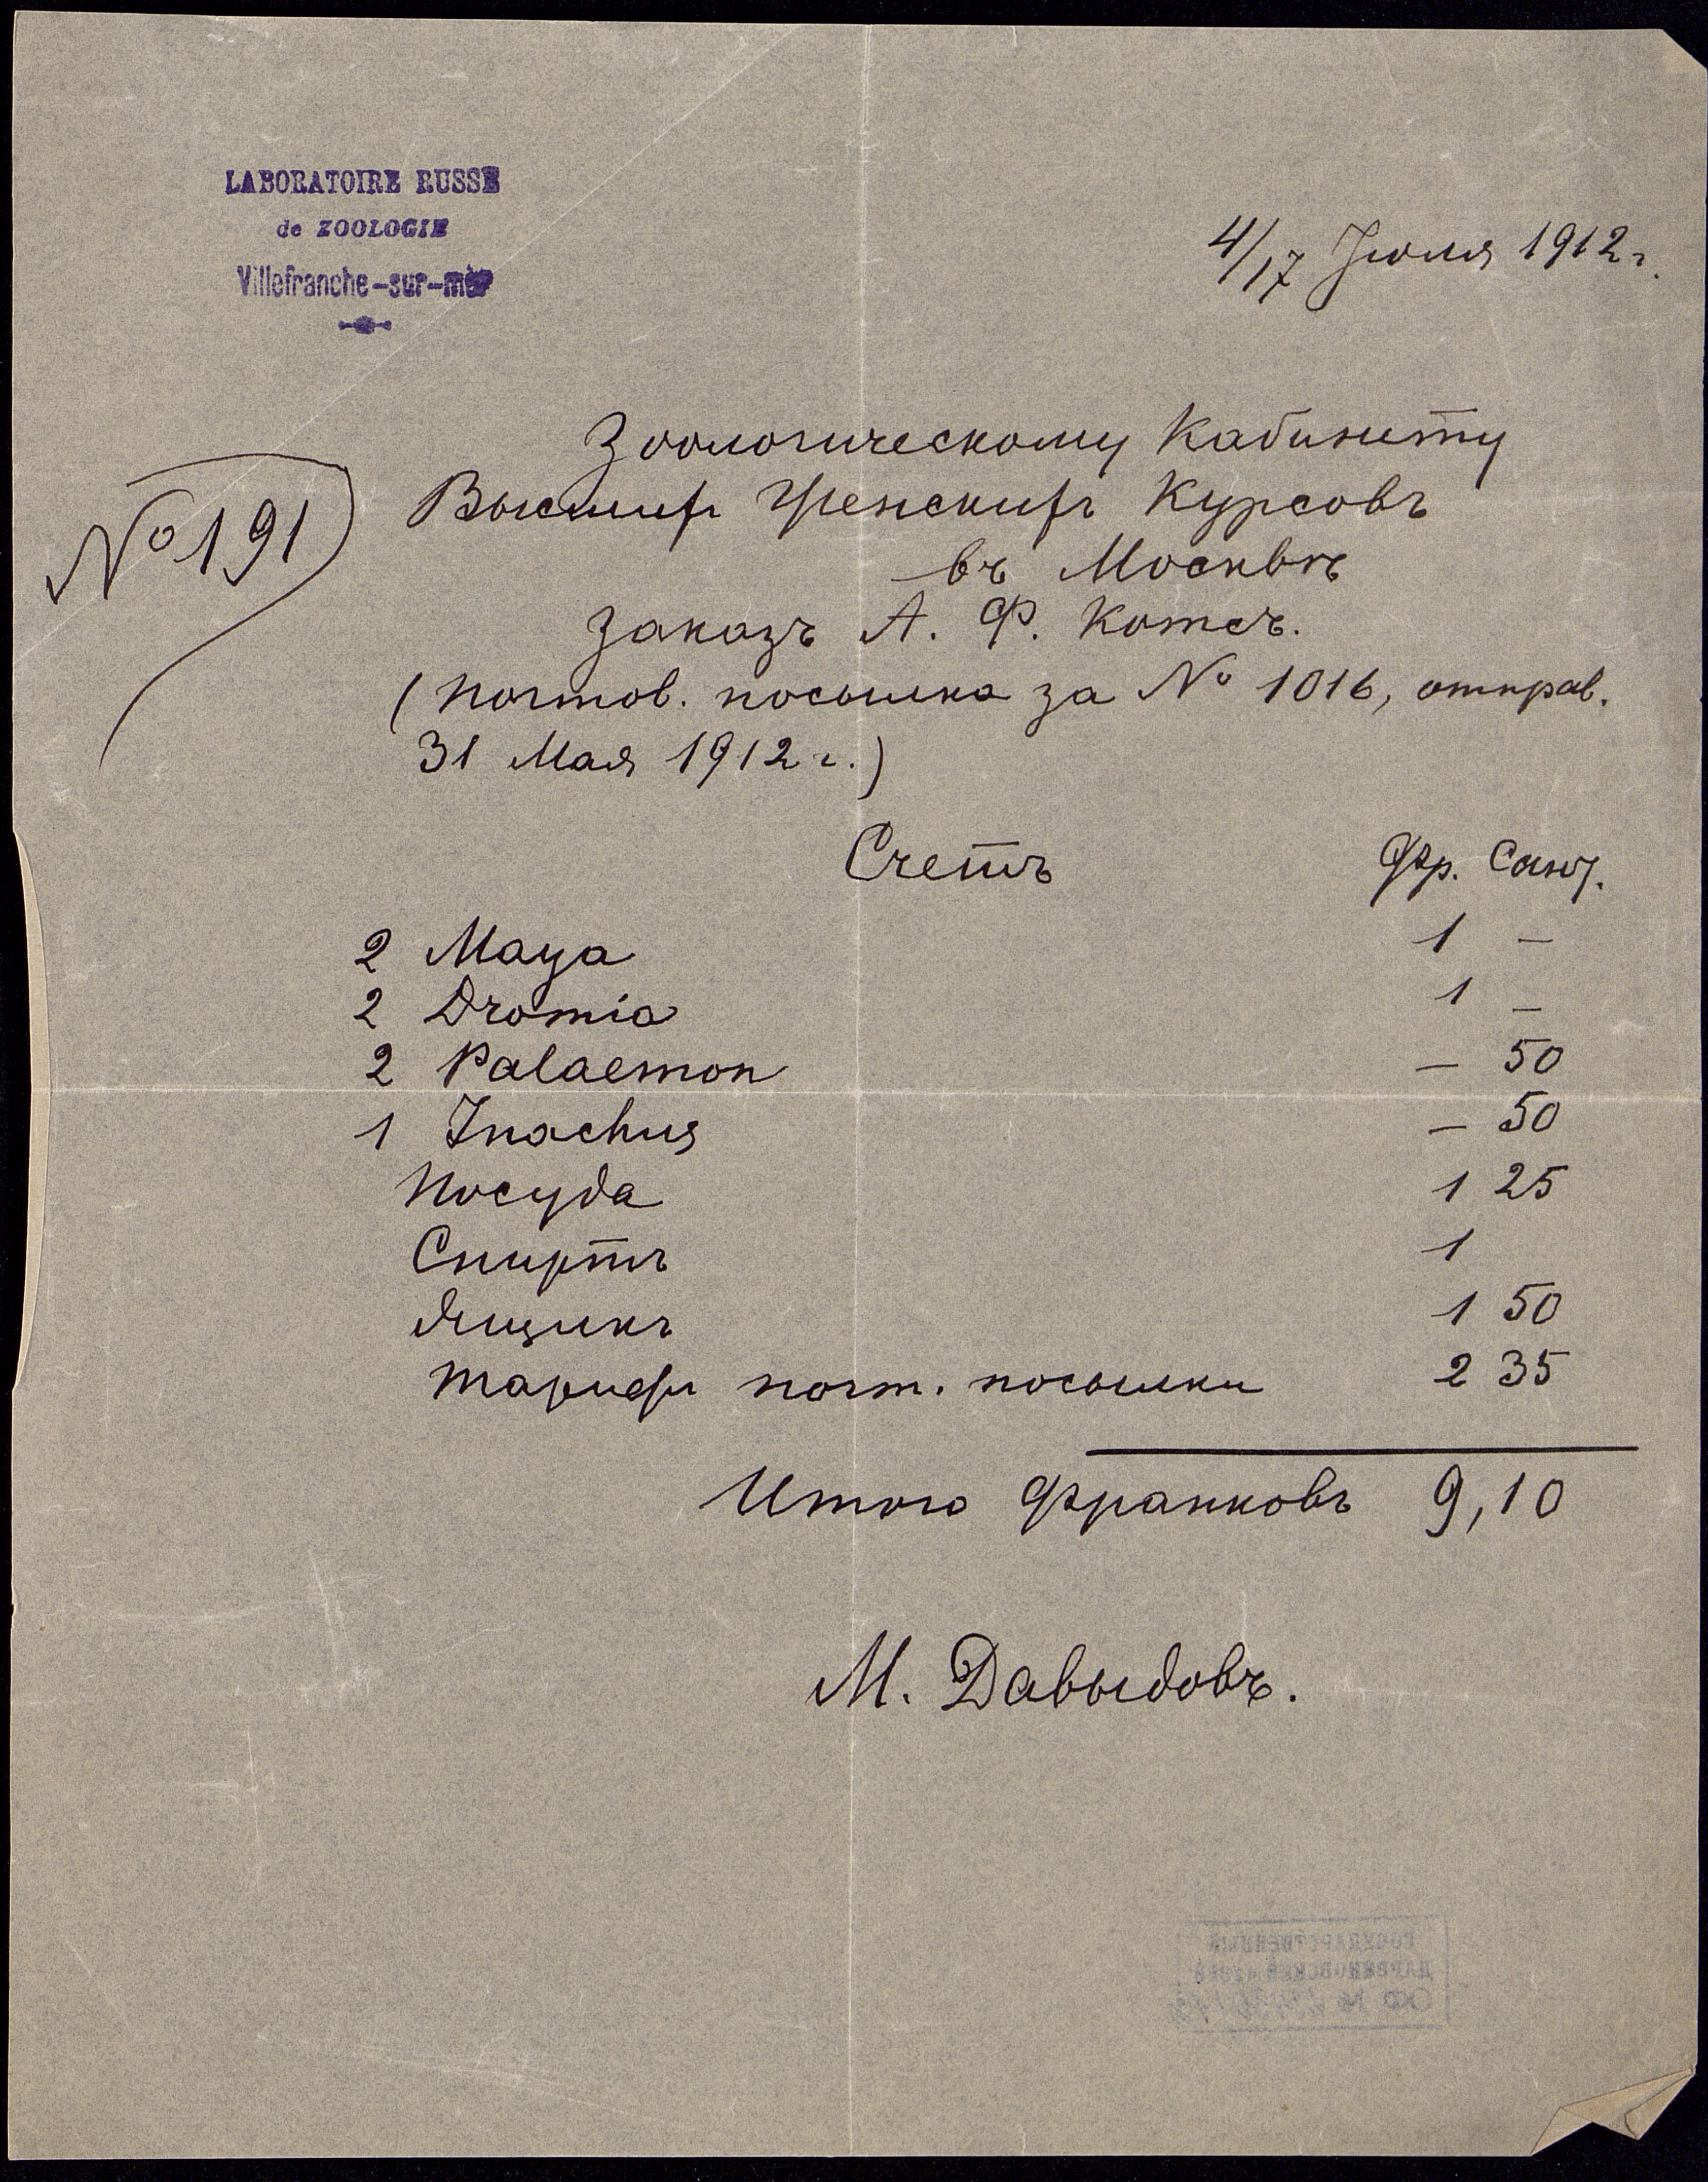 LABORATOIRE RUSSE
de ZOOLOGIE
Villefranche-sur-mer
4/17 Июля 1912 г.
№ 191
Зоологическому Кабинету
Высших Женских Курсовъ
въ Москвѣ
Заказъ А. Ф. Котсъ.
(Почтов. посылка за № 1016, отправ.
31 Мая 1912 г.)
Счетъ
Фр. Сант.
2 Maya 1 –
2 Dromia 1 –
2 Palaemon – 50
1 Inachus – 50
Посуда 1 25
Спиртъ 1
Ящикъ 1 50
Тарифъ почт. посылки 2 35
Итого франковъ 9,10
М. Давыдовъ.
ГОСУДАРСТВЕННЫЙ
ДАРВИНОВСКИЙ МУЗЕЙ
ОФ №